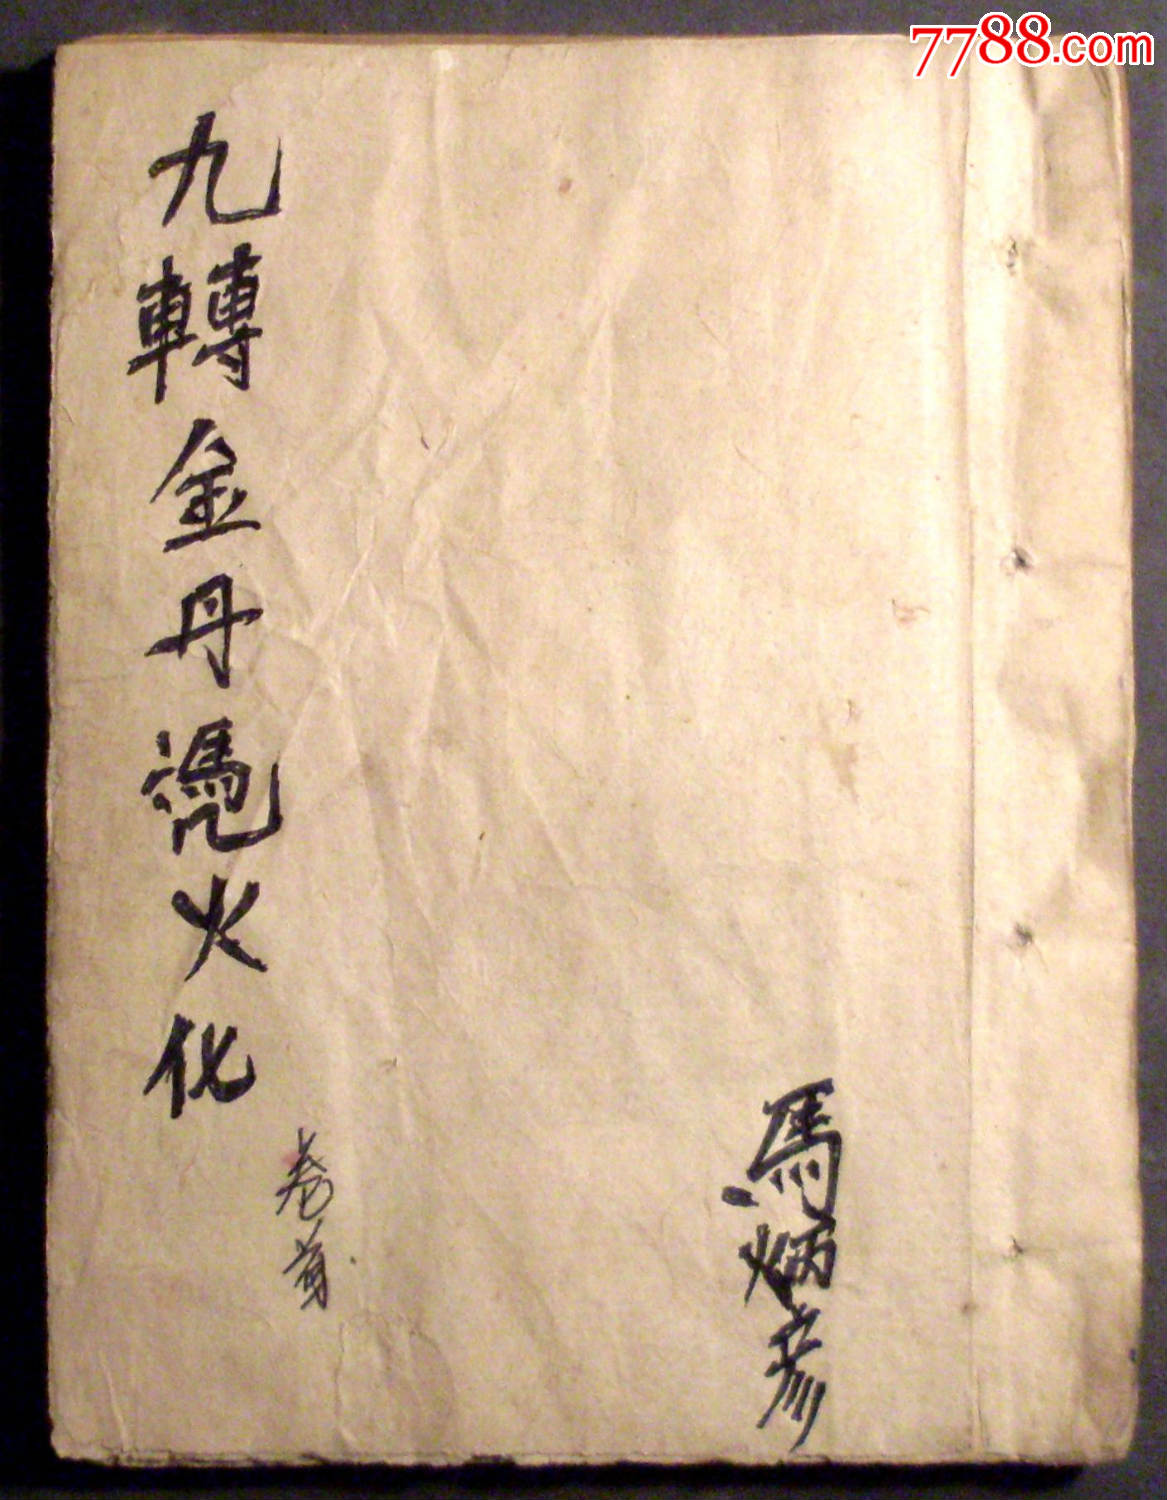 馬炳彦
九轉金丹憑火化
卷首
7788.com